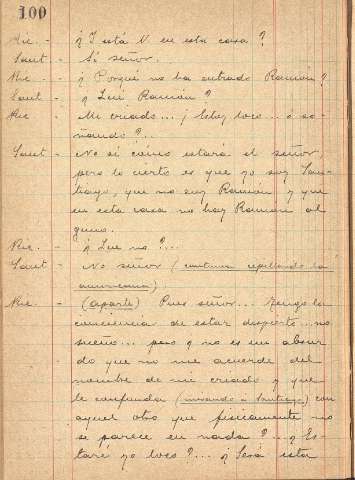 100
Ric. - ¿Y está V. en esta casa?
Sant - Si señor.
Ric. - ¿Porqué no ha entrado Ramón?
Sant - ¿Qué Ramón?
Ric - Mi criado... ¿Estoy loco... o so-
ñando?...
Sant - No sé cómo estará el señor,
pero lo cierto es que yo soy San-
tiago, que no soy Ramón y que
en esta casa no hay Ramón al
guno.
Ric. - ¿Que no?...
Sant - No señor (continua cepillando la
americana)
Ric - (aparte) Pues señor... tengo la
conciencia de estar despierto... no
sueño... pero ¿no es un absur
do que no me acuerde del
nombre de mi criado y que
le confunda (mirando a Santiago) con
aquel otro que fisicamente no
se parece en nada?... ¿Es-
taré yo loco?... ¿Será esta